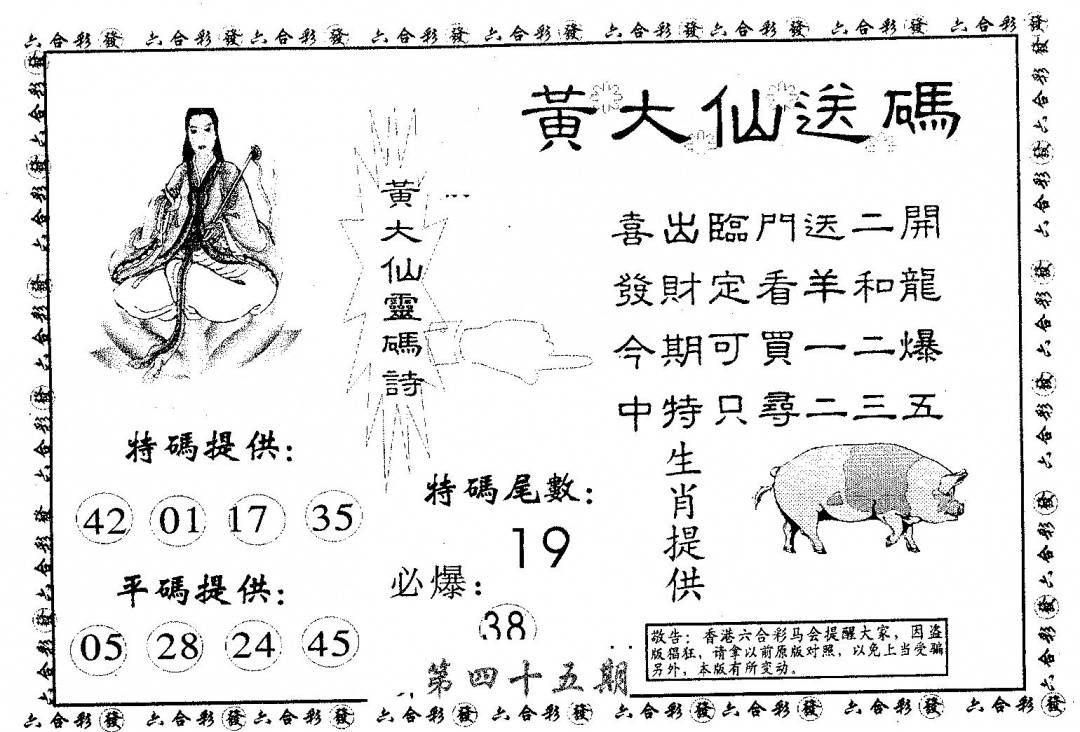 六合彩發 六合彩發 六合彩發 六合彩發 六合彩發 六合彩發 六合彩發 六合彩發 六合彩發
黃大仙送碼
黃大仙靈碼詩
喜出臨門送二開
發財定看羊和龍
今期可買一二爆
中特只尋二三五
特碼提供:
42 01 17 35
平碼提供:
05 28 24 45
特碼尾數:
19
必爆:
38
生肖提供
敬告：香港六合彩马会提醒大家，因盗
版猖狂，请拿以前原版对照，以免上当受骗
另外，本版有所变动。
第四十五期
六合彩發 六合彩發 六合彩發 六合彩發 六合彩發 六合彩發 六合彩發 六合彩發 六合彩發